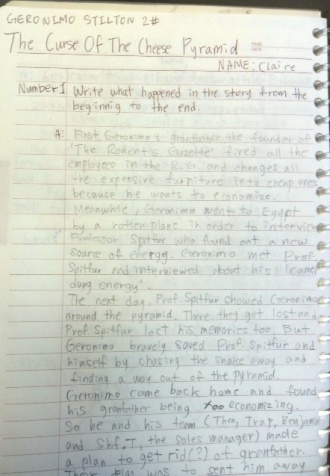 GERONIMO STILTON 2#
The Curse Of The Cheese Pyramid
NAME: Claire
Number1 Write what happened in the story from the
beginnig to the end.
A: First, Geronimo's grandfather, the founder of
'The Rodent's Gazette' fired all the
employees in the R.G. and changes all
the expensive furniture into cheap ones
because he wants to economize.
Meanwhile, Geronimo went to Egypt
by a rotten plane. In order to interview
Professor Spitfur who found out a new
source of energy. Geronimo met Prof.
Spitfur and interviewed about his 'camel
dung energy'.
The next day, Prof. Spitfur showed Geronimo
around the pyramid. There they got lost and
Prof. Spitfur lost his memories too. But
Geronimo bravely saved Prof. Spitfur and
himself by chasing the snake away and
finding a way out of the pyramid.
Geronimo came back home and found
his grandfather being too economizing.
So he and his team (Thea, Trap, Benjamin
and Shif.T, the sales manager) made
a plan to get rid(?) of grandfather.
plan was to sent him away